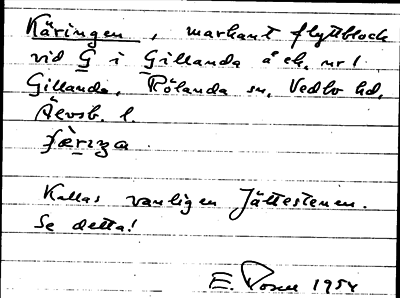 Käringen, markant flyttblock
vid G i Gillanda å ek. nr 1
Gillanda, Rölanda sn, Vedbo hd,
Älvsb. l.
Kallas vanligen Jättestenen.
Se detta!
E. 1954